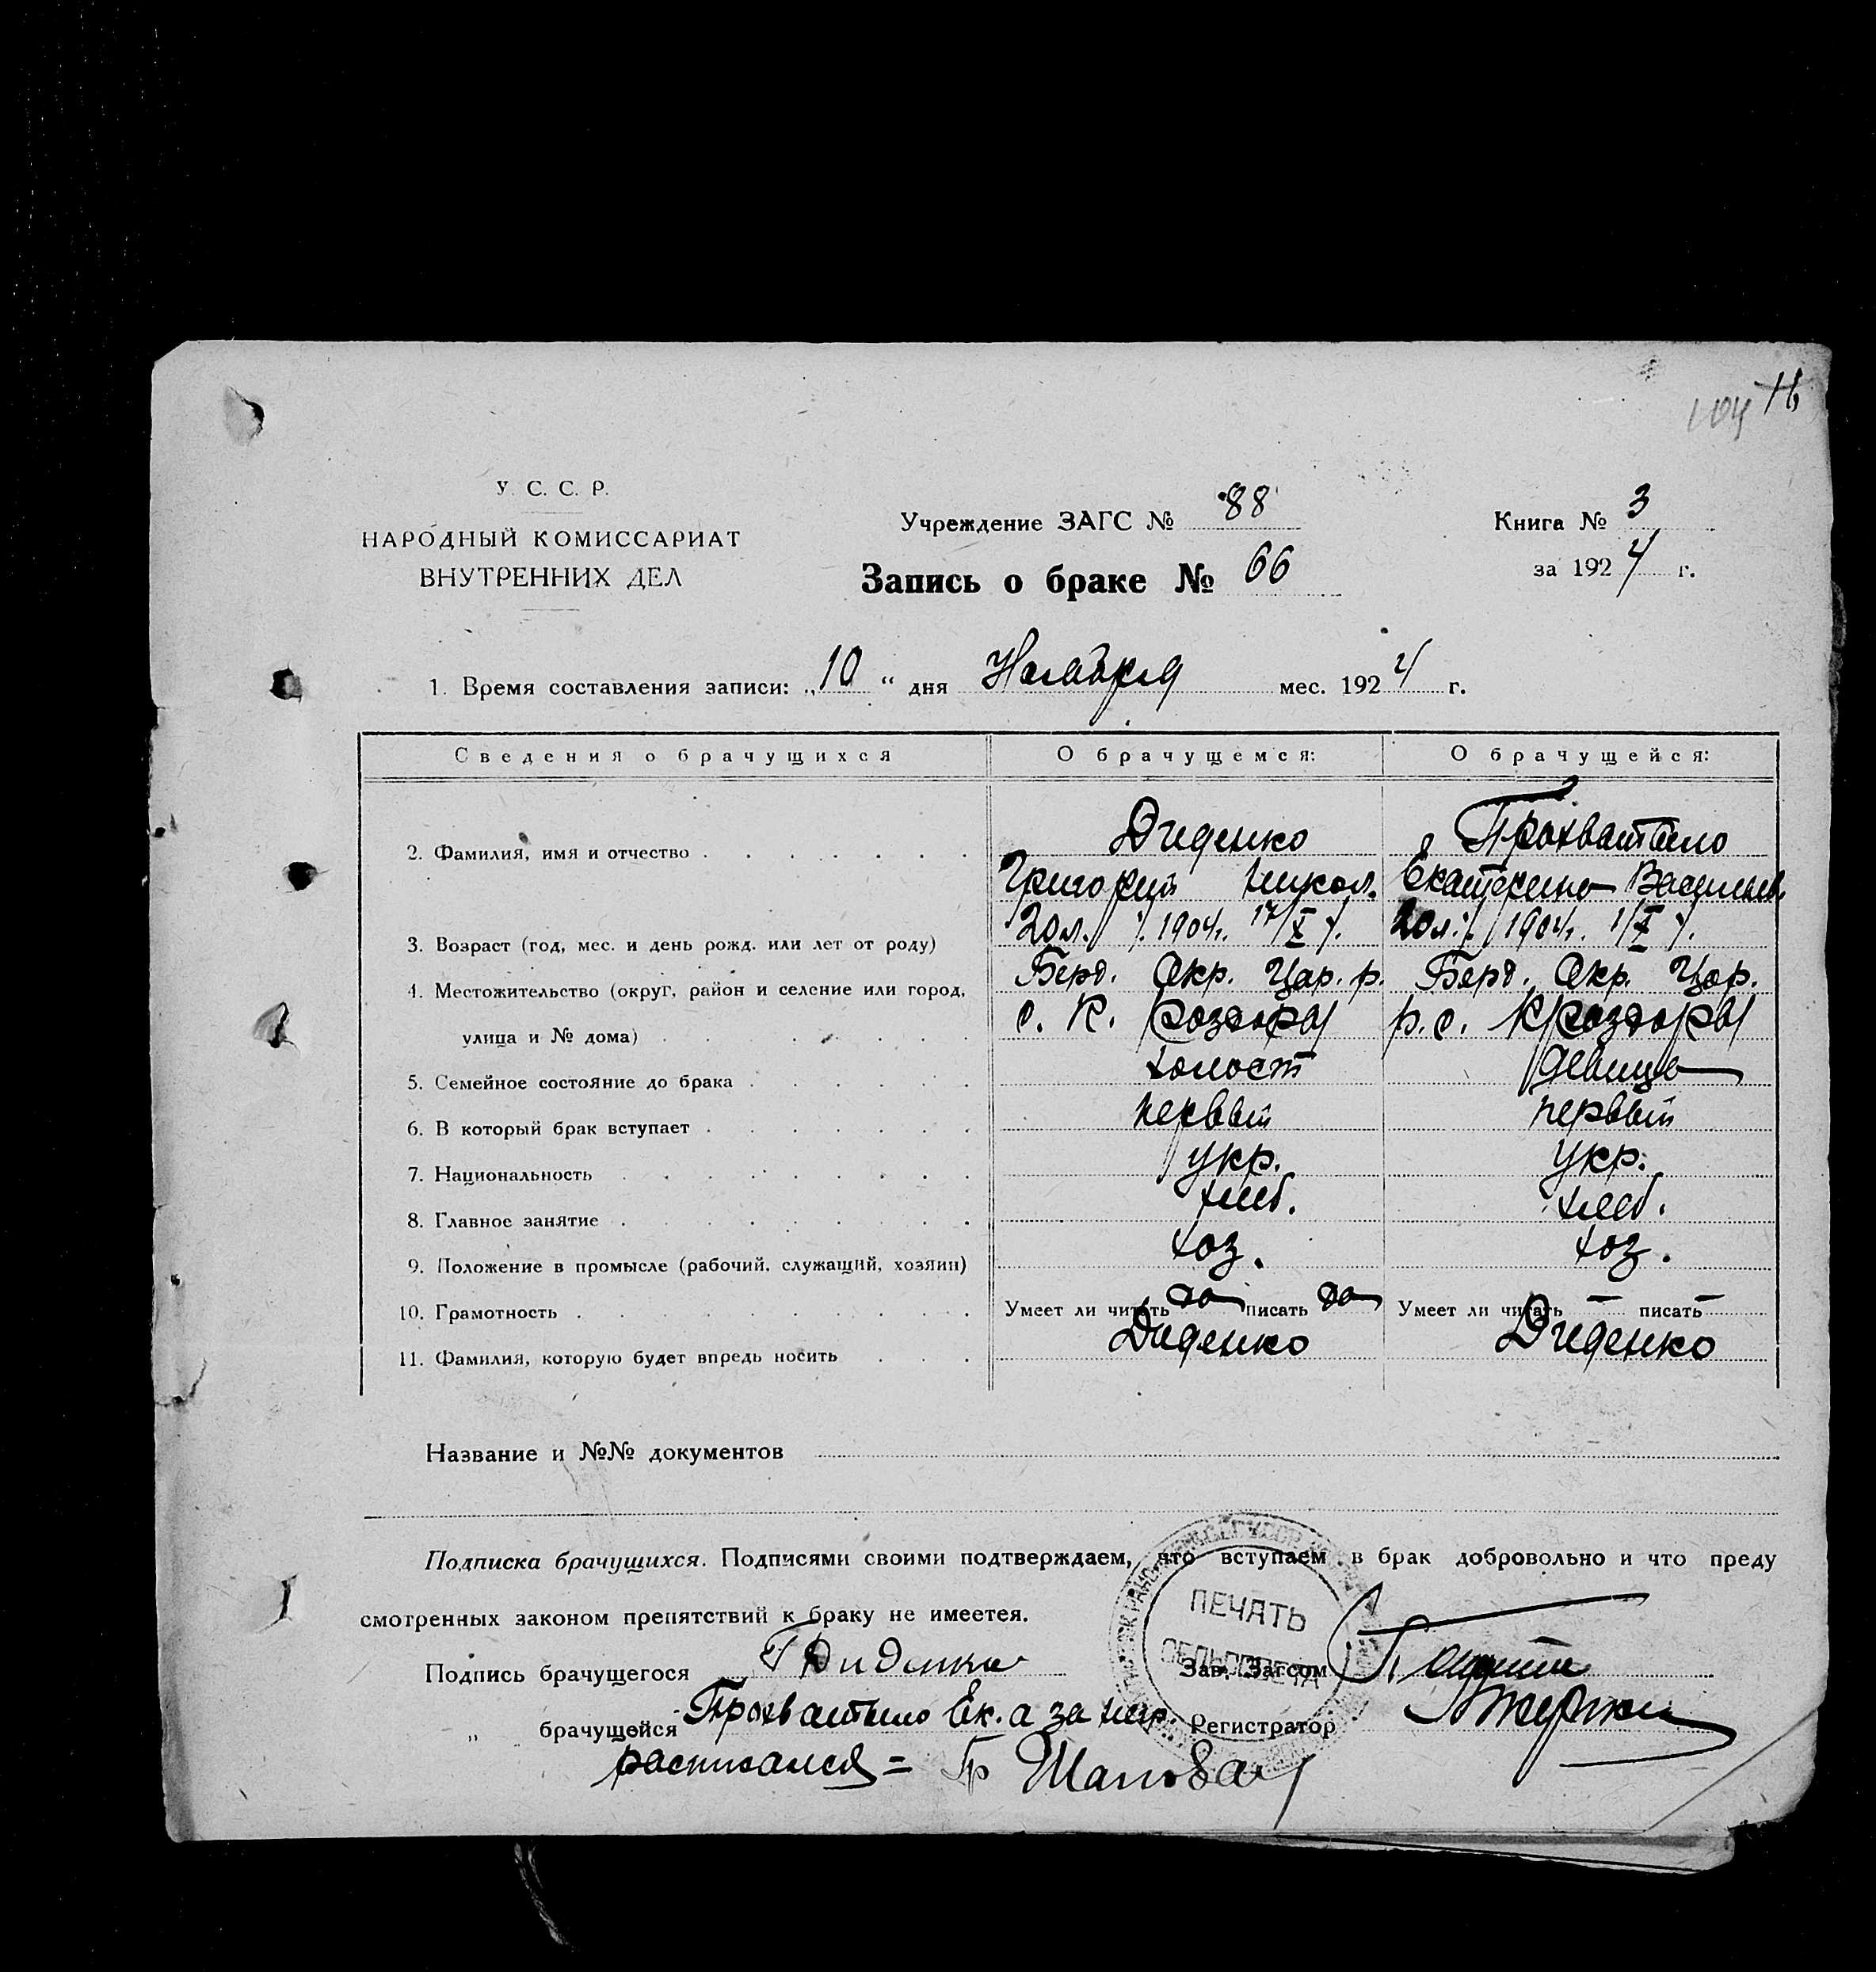 104
У. С. С. Р.
НАРОДНЫЙ КОМИССАРИАТ
ВНУТРЕННИХ ДЕЛ
Учреждение ЗАГС № 88
Запись о браке № 66
Книга № 3
за 1924 г.
1. Время составления записи: „10 “ дня Ноября мес. 1924 г.
Сведения о брачущихся О брачущемся: О брачущейся:
2. Фамилия, имя и отчество Диденко Прохватило
Григорий Никол. Екатерина Васильев.
3. Возраст (год, мес. и день рожд. или лет от роду) 20 л. /1904 г. 17/X/. 20 л. /1904 г. 1/X/.
4. Местожительство (округ, район и селение или город, Берд. Окр. Цар. р. Берд. Окр. Цар.
улица и № дома) с. К. Роздоры р. с. К Роздоры
5. Семейное состояние до брака холост девица
6. В который брак вступает первый первый
7. Национальность укр. укр.
8. Главное занятие хлеб. хлеб.
9. Положение в промысле (рабочий, служащий, хозяин) хоз. хоз.
10. Грамотность Умеет ли читать да писать да Умеет ли читать — писать —
11. Фамилия, которую будет впредь носить Диденко Диденко
Название и №№ документов
Подписка брачущихся. Подписями своими подтверждаем, что вступаем в брак добровольно и что преду
смотренных законом препятствий к браку не имеется.
ПЕЧАТЬ
СЕЛЬСОВЕТА
Подпись брачущегося Г Диденко Зав. Загсом
„ брачущейся Прохватило Ек. а за нег. Регистратор
расписался = Гр